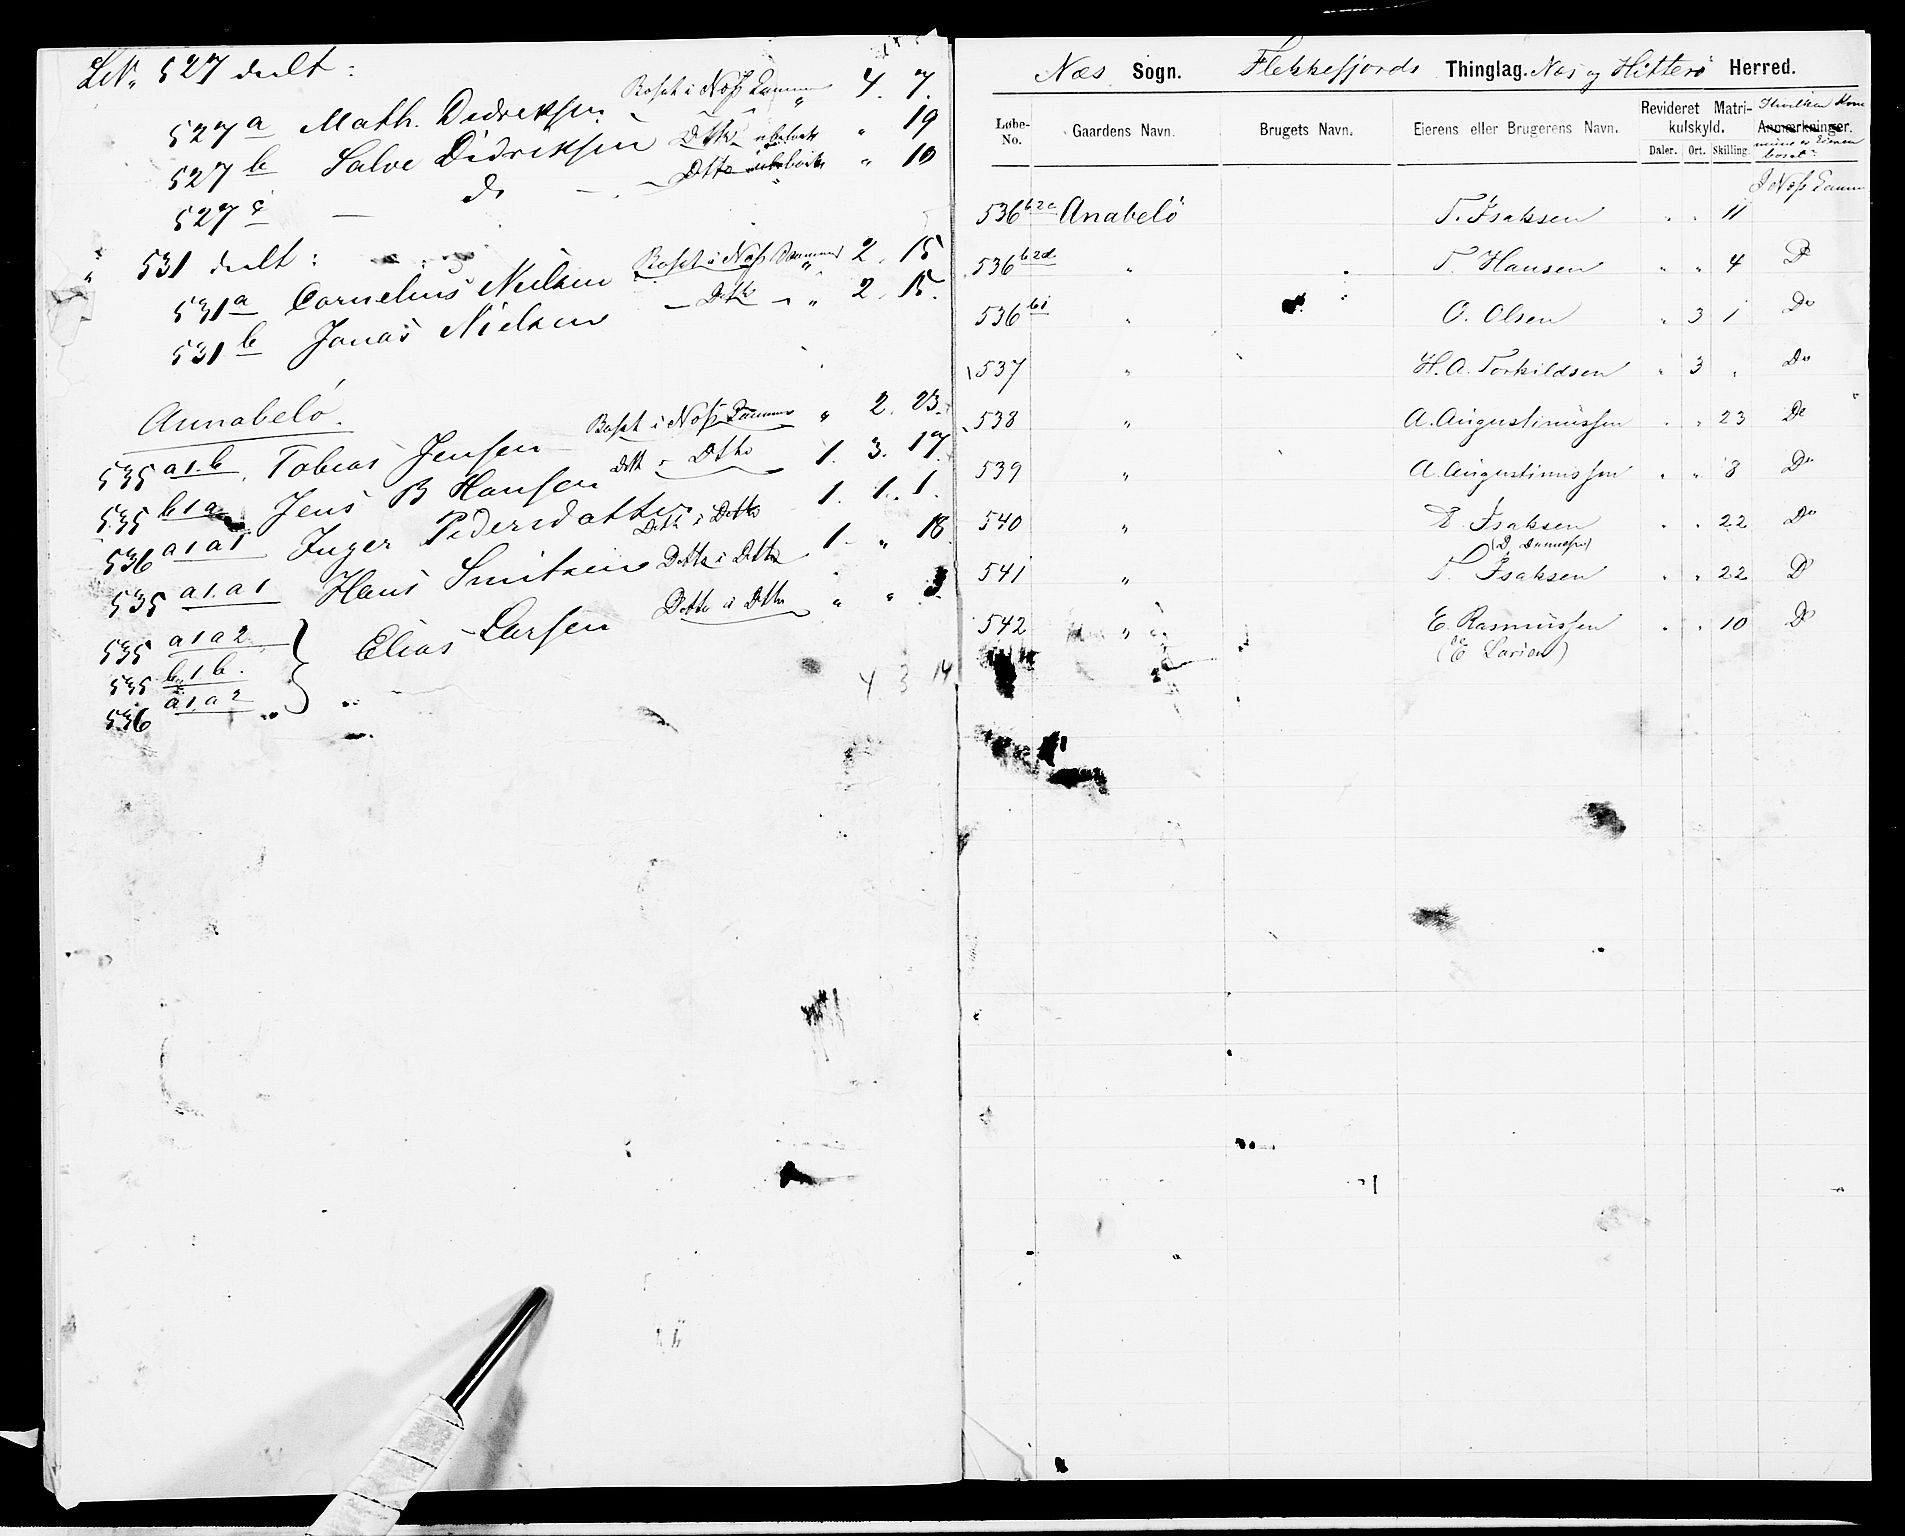 LN. 527 deelt:
527 a Math. Didriksen Bosat i Næs 4. 7.
527 b Salve Didriksen Ditto ubebœt " 19
527 c — do — Ditto " 10
" 531 deelt:
531 a Cornelius Nielsen Bosat i Næs " 2. 15
531 b Jonas Nielsen — Ditto — " 2. 15.
Annabelø.
535 a1.b. Tobias Jensen Bosat i Næs " 2. 23.
535 b1a Jens B Hansen Ditto i Ditto 1. 3. 17
536 a1a1 Inger Pedersdatter Ditto i Ditto 1. 1. 1.
535 a1.a1 Hans Smitsen Ditto i Ditto 1. " 18
535 a1a2 } Elias Larsen Ditto i Ditto " " 3
535 b.1b.
536 a1.a2
4 3 14
Næs Sogn. Flekkefjords Thinglag. Næs og Hitterø Herred.
Løbe-No. Gaardens Navn. Brugets Navn. Eierens eller Brugerens Navn. Revideret Matrikulskyld. Daler. Ort. Skilling. Anmærkninger. Hvilken Kommune er Eieren bosat?
536 b2c Anabelö T. Isaksen " " 11 I Næs
536 b2d " T. Hansen " " 4 Do
536 bi " O. Olsen " 3 1 Do
537 " H. A. Torkildsen " 3 " Do
538 " A. Augustinussen " " 23 Do
539 " A. Augustinussen " " 8 Do
540 " E. Isaksen " " 22 Do
541 " T. Isaksen " " 22 Do
542 " E. Rasmussen " " 10 Do
(E Larsen)